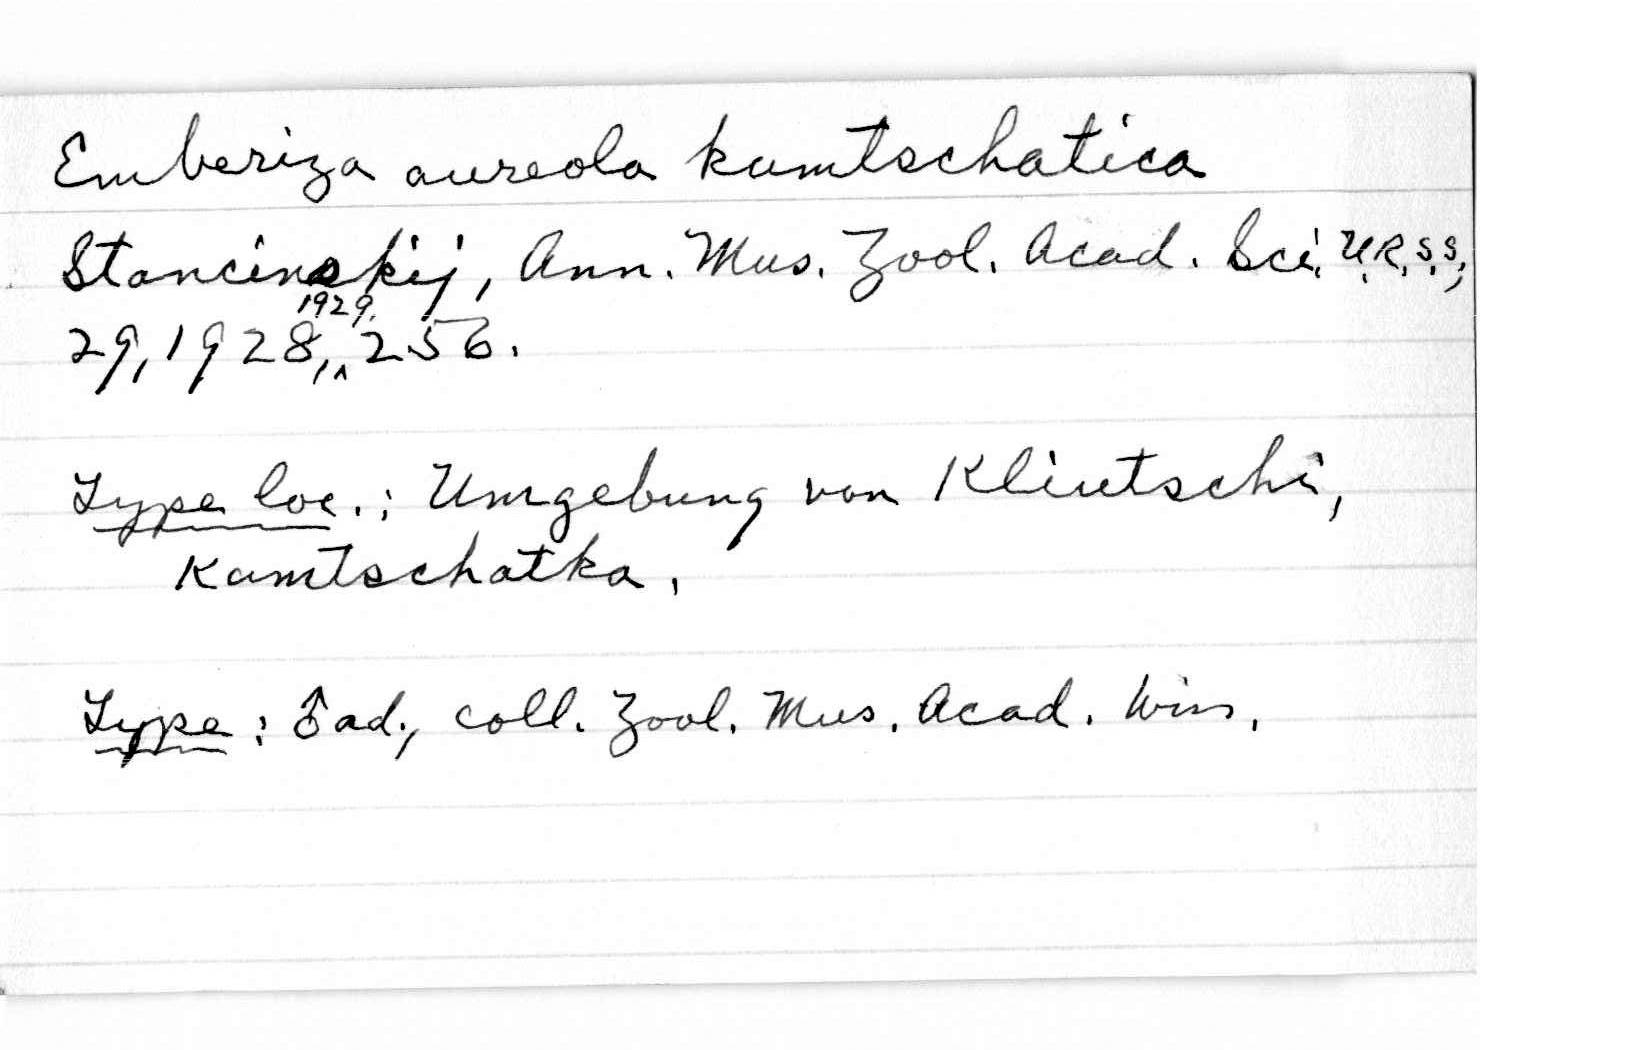 Emberiza aureola kamtschatica
Stancinskij, Ann. Mus. Zool. Acad. Sci. U.R.S.S.,
29, 1928, 1929, 256.
Type loc.: Umgebung von Kliutschi,
Kamtschatka.
Type: ♂ ad., coll. Zool. Mus. Acad. Wiss.